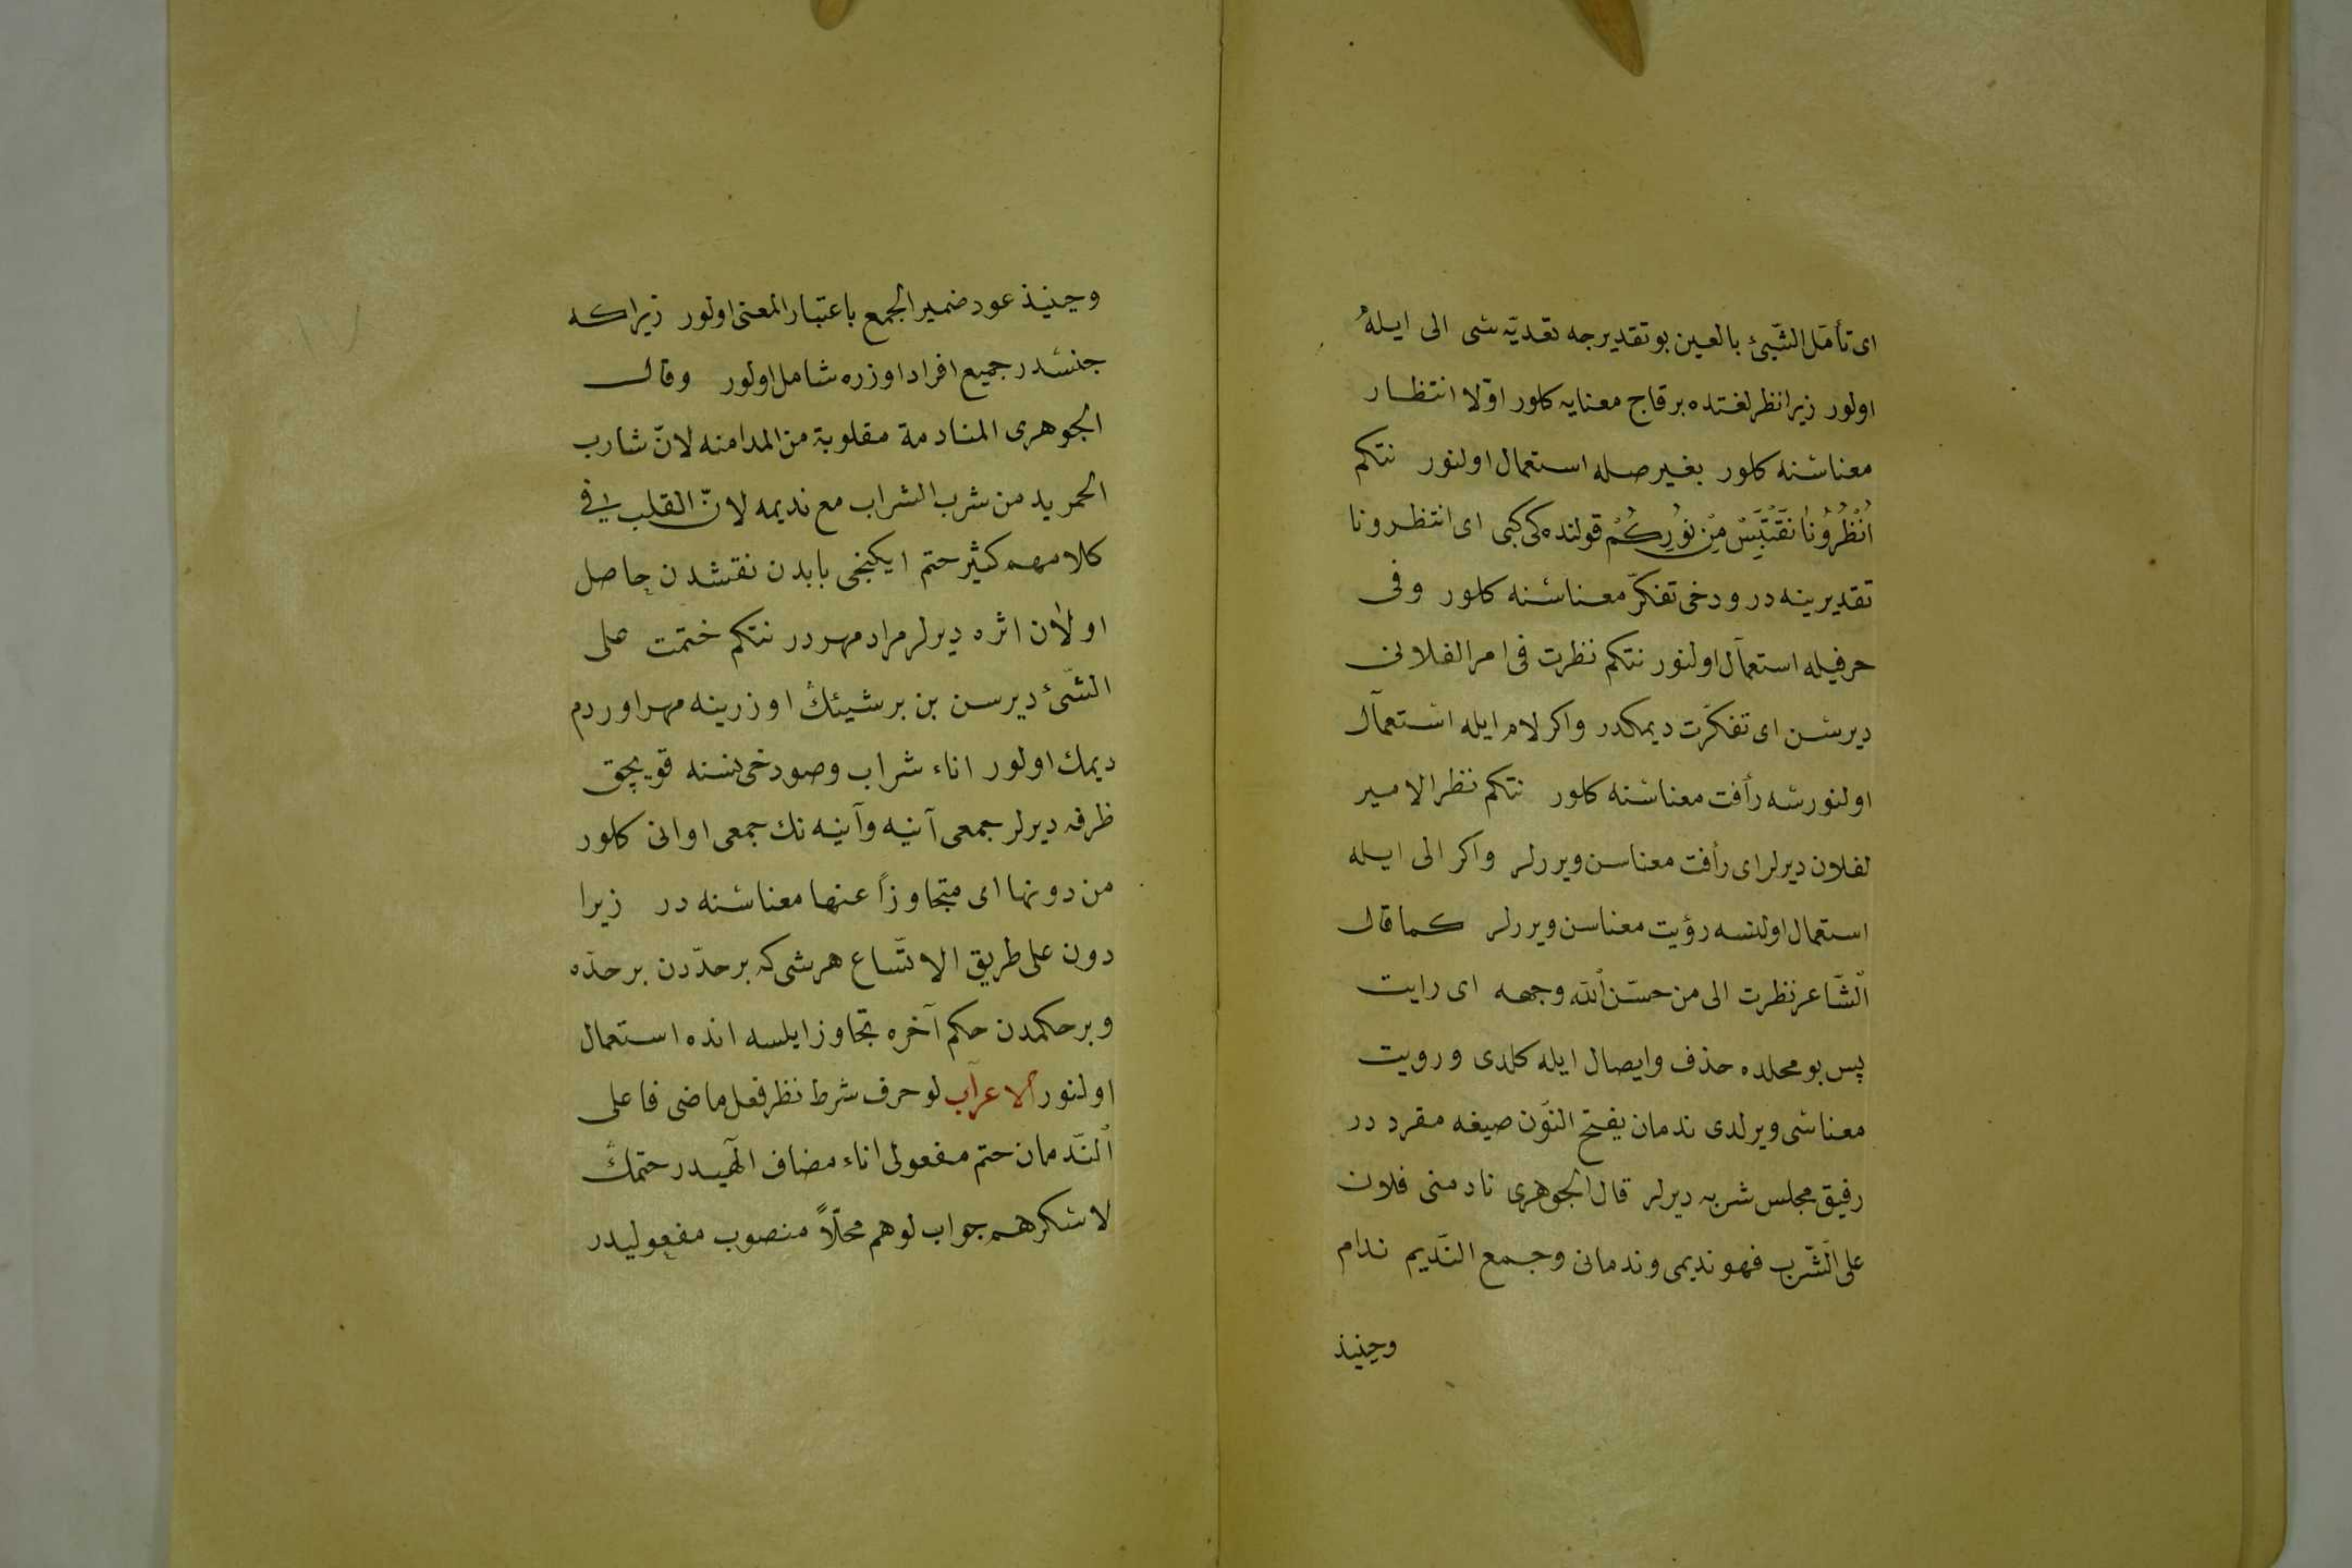 ای تأمّل الشّیئ بالعین بو تقدیرجه تعدیّه شی الی ایله
اولور زیرا نظر لغتده بر قاچ معنایه کلور اوّلا انتظار
معناسنه کلور بغیر صله استعمال اولنور نتکم
اُنْظُرُونَا نَقْتَبِسْ مِنْ نُورِكُمْ قولنده کی کبی ای انتظرونا
تقدیرینه در ودخی تفکّر معناسنه کلور وفی
حرفیله استعمال اولنور نتکم نظرت فی امر الفلانی
دیرسن ای تفکّرت دیمکدر واکر لام ایله استعمال
اولنورسه رأفت معناسنه کلور نتکم نظر الامیر
لفلان دیرلر ای رأفت معناسن ویررلر واکر الی ایله
استعمال اولنسه رؤیت معناسن ویررلر کما قال
الشّاعر نظرت الی من حسّن الله وجهه ای رایت
پس بو محلده حذف وایصال ایله کلدی ورویت
معناسی ویرلدی ندمان بفتح النّون صیغه مفرد در
رفیق مجلس شربه دیرلر قال الجوهری نادمنی فلان
علی الشّرب فهو ندیمی وندمانی وجمع النّدیم ندام
وحینئذ
وحینئذ عود ضمیر الجمع باعتبار المعنی اولور زیراکه
جنسدر جمیع افراد اوزره شامل اولور وقال
الجوهری المنادمة مقلوبة من المدامنه لانّ شارب
الخمر یدمن شرب الشراب مع ندیمه لانّ القلب فی
کلامهم کثیر ختم ایکنجی بابدن نقشدن حاصل
اولان اثره دیرلر مراد مهر در نتکم ختمت علی
الشّئ دیرسن بن بر شیئك اوزرینه مهر اوردم
دیمك اولور اناء شراب وصو دخی نسنه قویجق
ظرفه دیرلر جمعی آنیه وآنیه نك جمعی اوانی کلور
من دونها ای متجاوزاً عنها معناسنه در زیرا
دون علی طریق الاتّساع هر شی که بر حدّدن بر حدّه
وبر حکمدن حکم آخره تجاوز ایلسه انده استعمال
اولنور الاعراب لو حرف شرط نظر فعل ماضی فاعلی
النّدمان ختم مفعولی اناء مضاف الیهیدر ختمك
لاسکرهم جواب لو هم محلّاً منصوب مفعولیدر